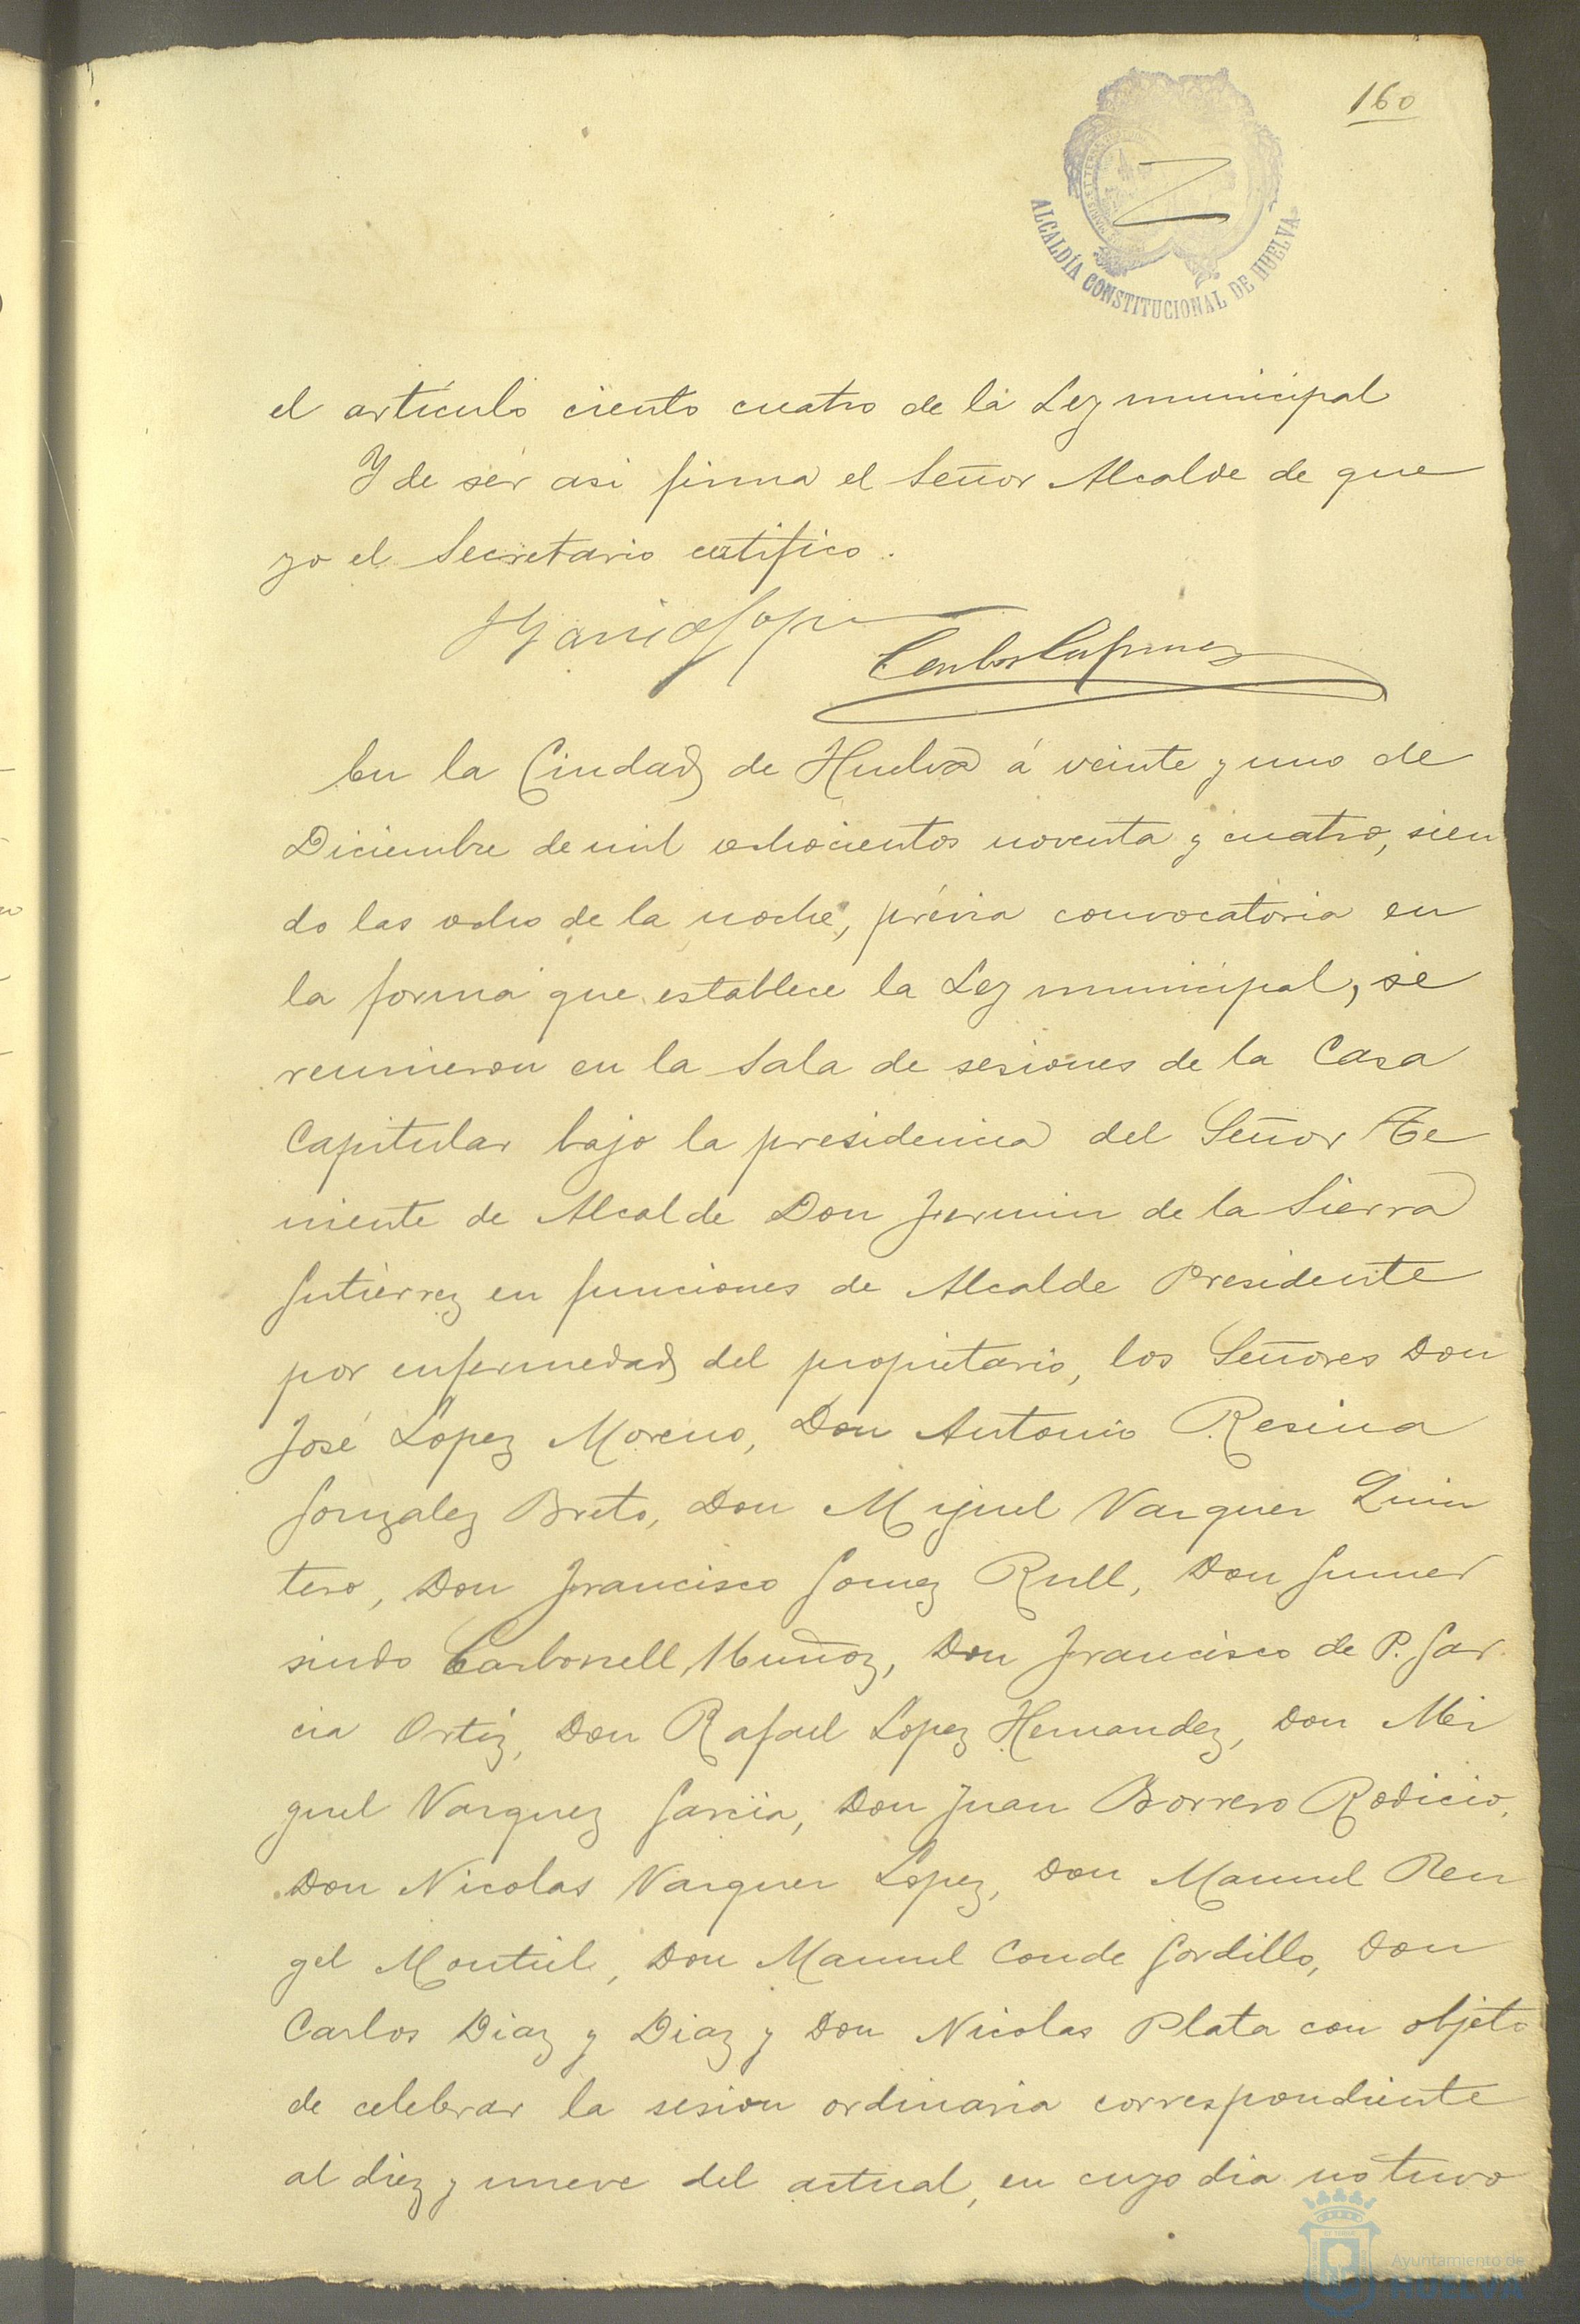 160
ALCALDÍA CONSTITUCIONAL DE HUELVA
el artículo ciento cuatro de la Ley municipal
Y de ser asi firma el Señor Alcalde de que
yo el Secretario certifico.
En la Ciudad de Huelva á veinte y uno de
Diciembre de mil ochocientos noventa y cuatro, sien
do las ocho de la noche, prévia convocatoria en
la forma que establece la Ley municipal, se
reunieron en la Sala de sesiones de la Casa
Capitular bajo la presidencia del Señor Te
niente de Alcalde Don Fermin de la Sierra
Gutierrez en funciones de Alcalde Presidente
por enfermedad del propietario, los Señores Don
José Lopez Moreno, Don Antonio Resina
Gonzalez Brito, Don Miguel Vazquez Quin
tero, Don Francisco Gomez Rull, Don Gumer
sindo Carbonell Muñoz, Don Francisco de P. Gar
cia Ortiz, Don Rafael Lopez Hernandez, Don Mi
guel Vazquez Garcia, Don Juan Borrero Rodicio,
Don Nicolas Vazquez Lopez, Don Manuel Ren
gel Montiel, Don Manuel Conde Gordillo, Don
Carlos Diaz y Diaz y Don Nicolas Plata con objeto
de celebrar la sesion ordinaria correspondiente
al diez y nueve del actual, en cuyo dia no tuvo
Ayuntamiento de
HUELVA